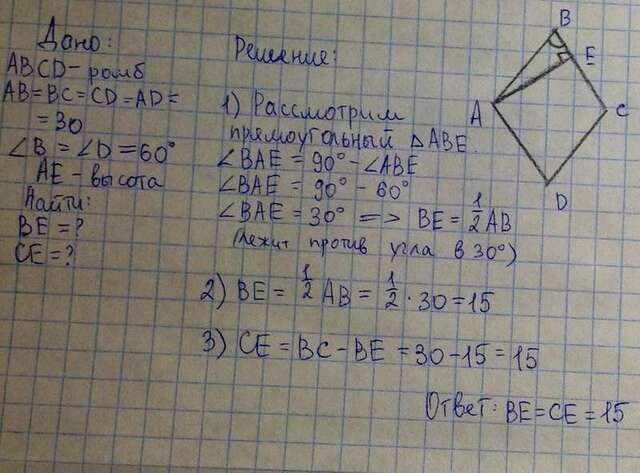 Дано:
ABCD - ромб
AB=BC=CD=AD=
=30
∠B=∠D=60°
AE - высота
Найти:
BE=?
CE=?
Решение:
1) Рассмотрим
прямоугольный △ABE.
∠BAE = 90° - ∠ABE
∠BAE = 90° - 60°
∠BAE = 30° => BE = 1/2 AB
(лежит против угла в 30°)
2) BE = 1/2 AB = 1/2 · 30 = 15
3) CE = BC - BE = 30 - 15 = 15
Ответ: BE = CE = 15
B
E
A
C
D